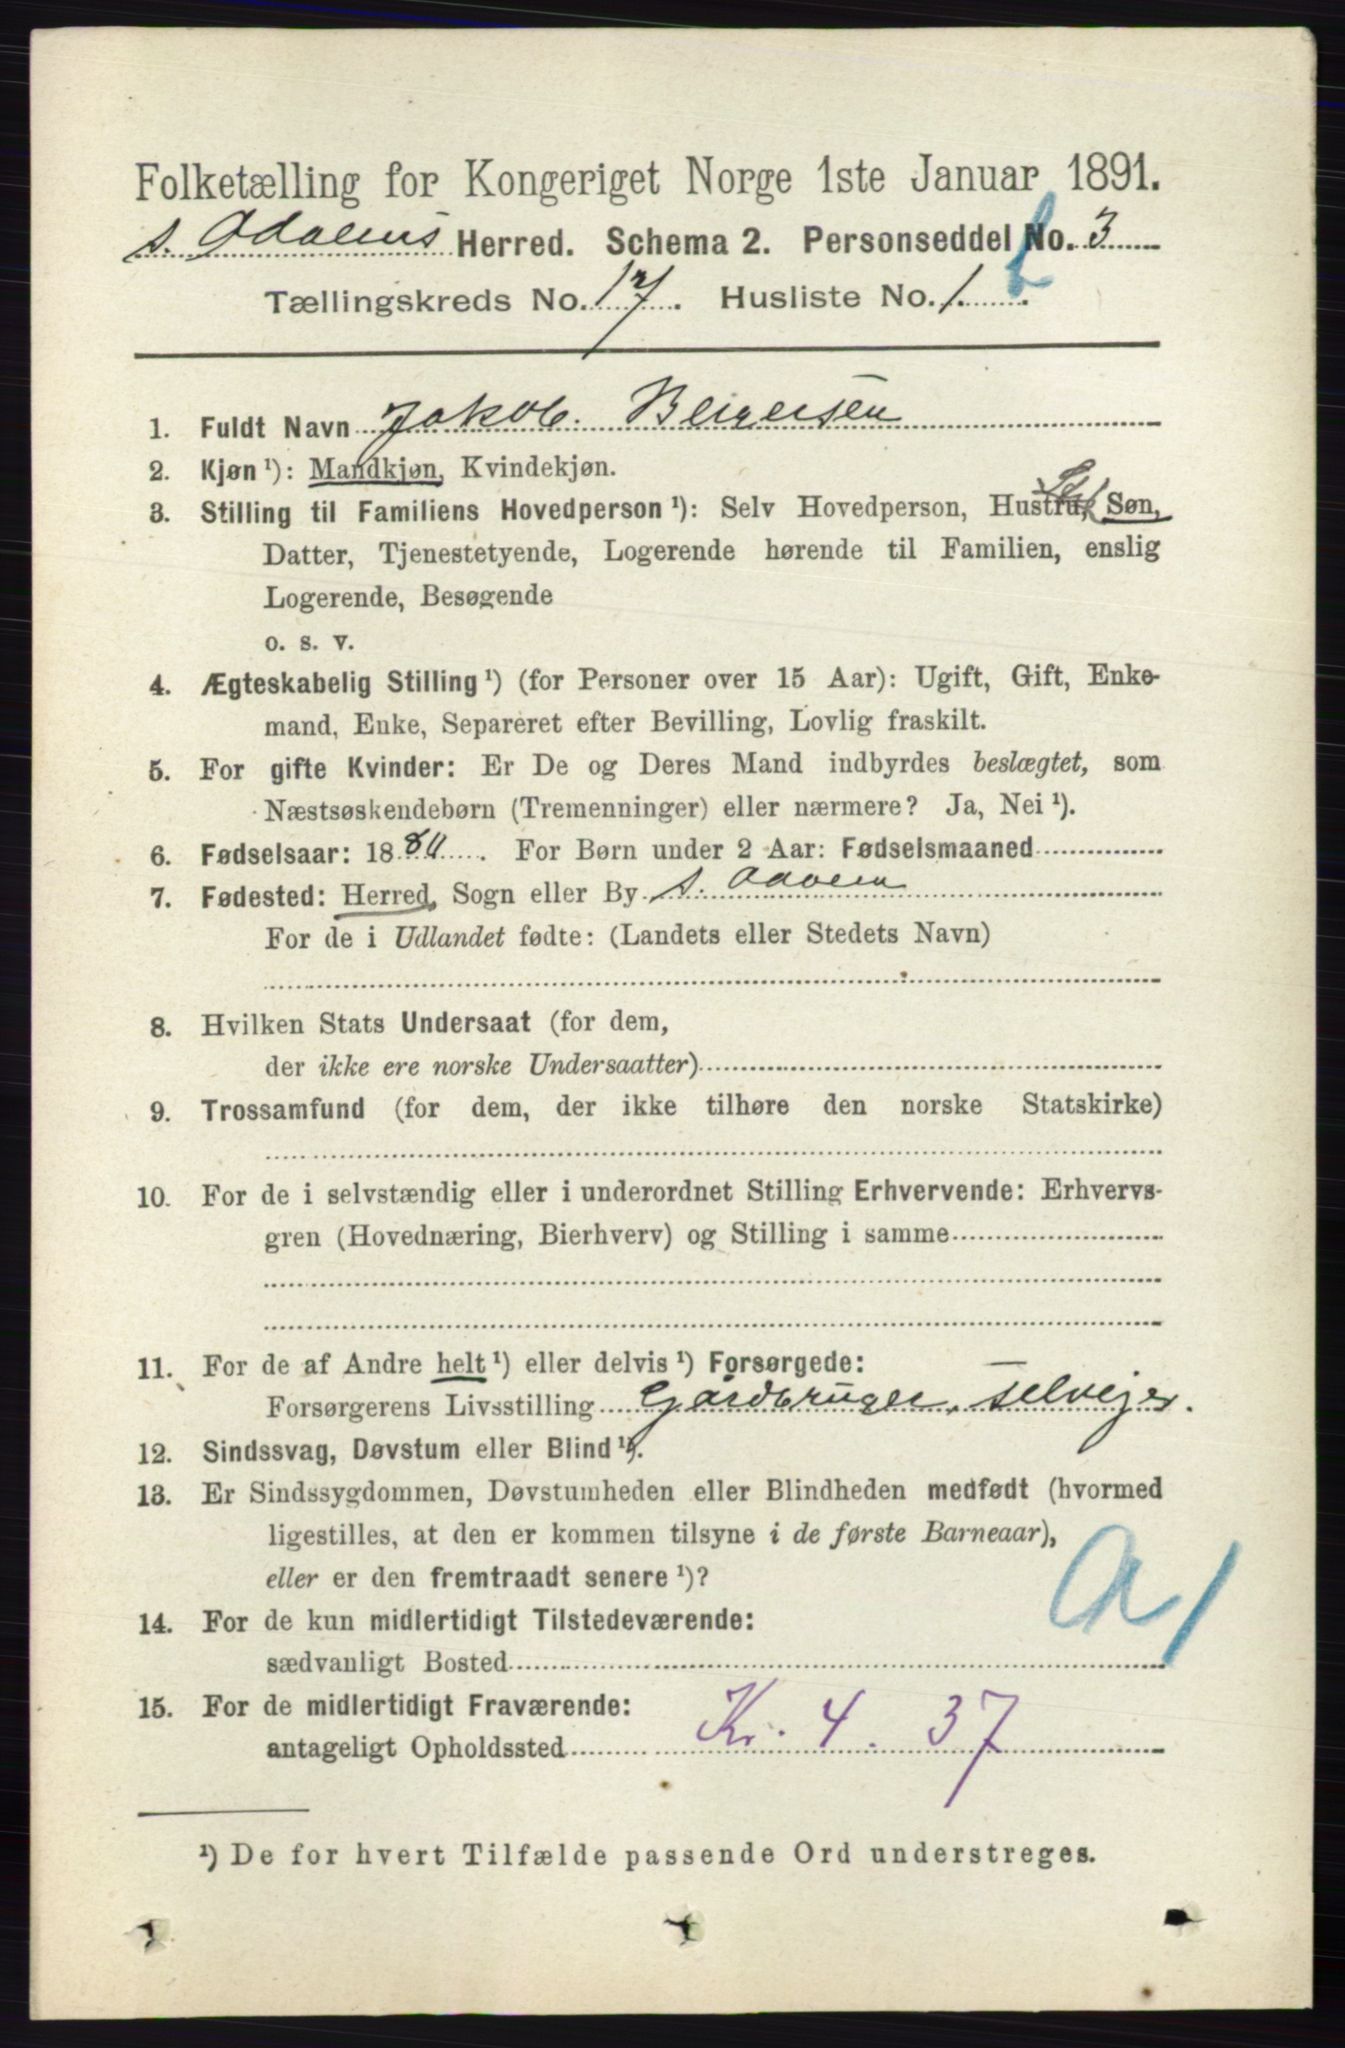 Folketælling for Kongeriget Norge 1ste Januar 1891.
s. Odalens Herred. Schema 2. Personseddel No. 3
Tællingskreds No. 17. Husliste No. 1.
1. Fuldt Navn Jakob. Beigersen
2. Kjøn ¹): Mandkjøn, Kvindekjøn.
3. Stilling til Familiens Hovedperson ¹): Selv Hovedperson, Hustru, Søn,
Datter, Tjenestetyende, Logerende hørende til Familien, enslig
Logerende, Besøgende
o. s. v.
4. Ægteskabelig Stilling ¹) (for Personer over 15 Aar): Ugift, Gift, Enke-
mand, Enke, Separeret efter Bevilling, Lovlig fraskilt.
5. For gifte Kvinder: Er De og Deres Mand indbyrdes beslægtet, som
Næstsøskendebørn (Tremenninger) eller nærmere? Ja, Nei ¹).
6. Fødselsaar: 18 80. For Børn under 2 Aar: Fødselsmaaned
7. Fødested: Herred, Sogn eller By s.
For de i Udlandet fødte: (Landets eller Stedets Navn)
8. Hvilken Stats Undersaat (for dem,
der ikke ere norske Undersaatter)
9. Trossamfund (for dem, der ikke tilhøre den norske Statskirke)
10. For de i selvstændig eller i underordnet Stilling Erhvervende: Erhvervs-
gren (Hovednæring, Bierhverv) og Stilling i samme
11. For de af Andre helt ¹) eller delvis ¹) Forsørgede:
Forsørgerens Livsstilling Gårdbruger, selvejer.
12. Sindssvag, Døvstum eller Blind ¹).
13. Er Sindssygdommen, Døvstumheden eller Blindheden medfødt (hvormed
ligestilles, at den er kommen tilsyne i de første Barneaar),
eller er den fremtraadt senere ¹)?
14. For de kun midlertidigt Tilstedeværende:
sædvanligt Bosted
15. For de midlertidigt Fraværende:
antageligt Opholdssted Kr. 4. 37
¹) De for hvert Tilfælde passende Ord understreges.